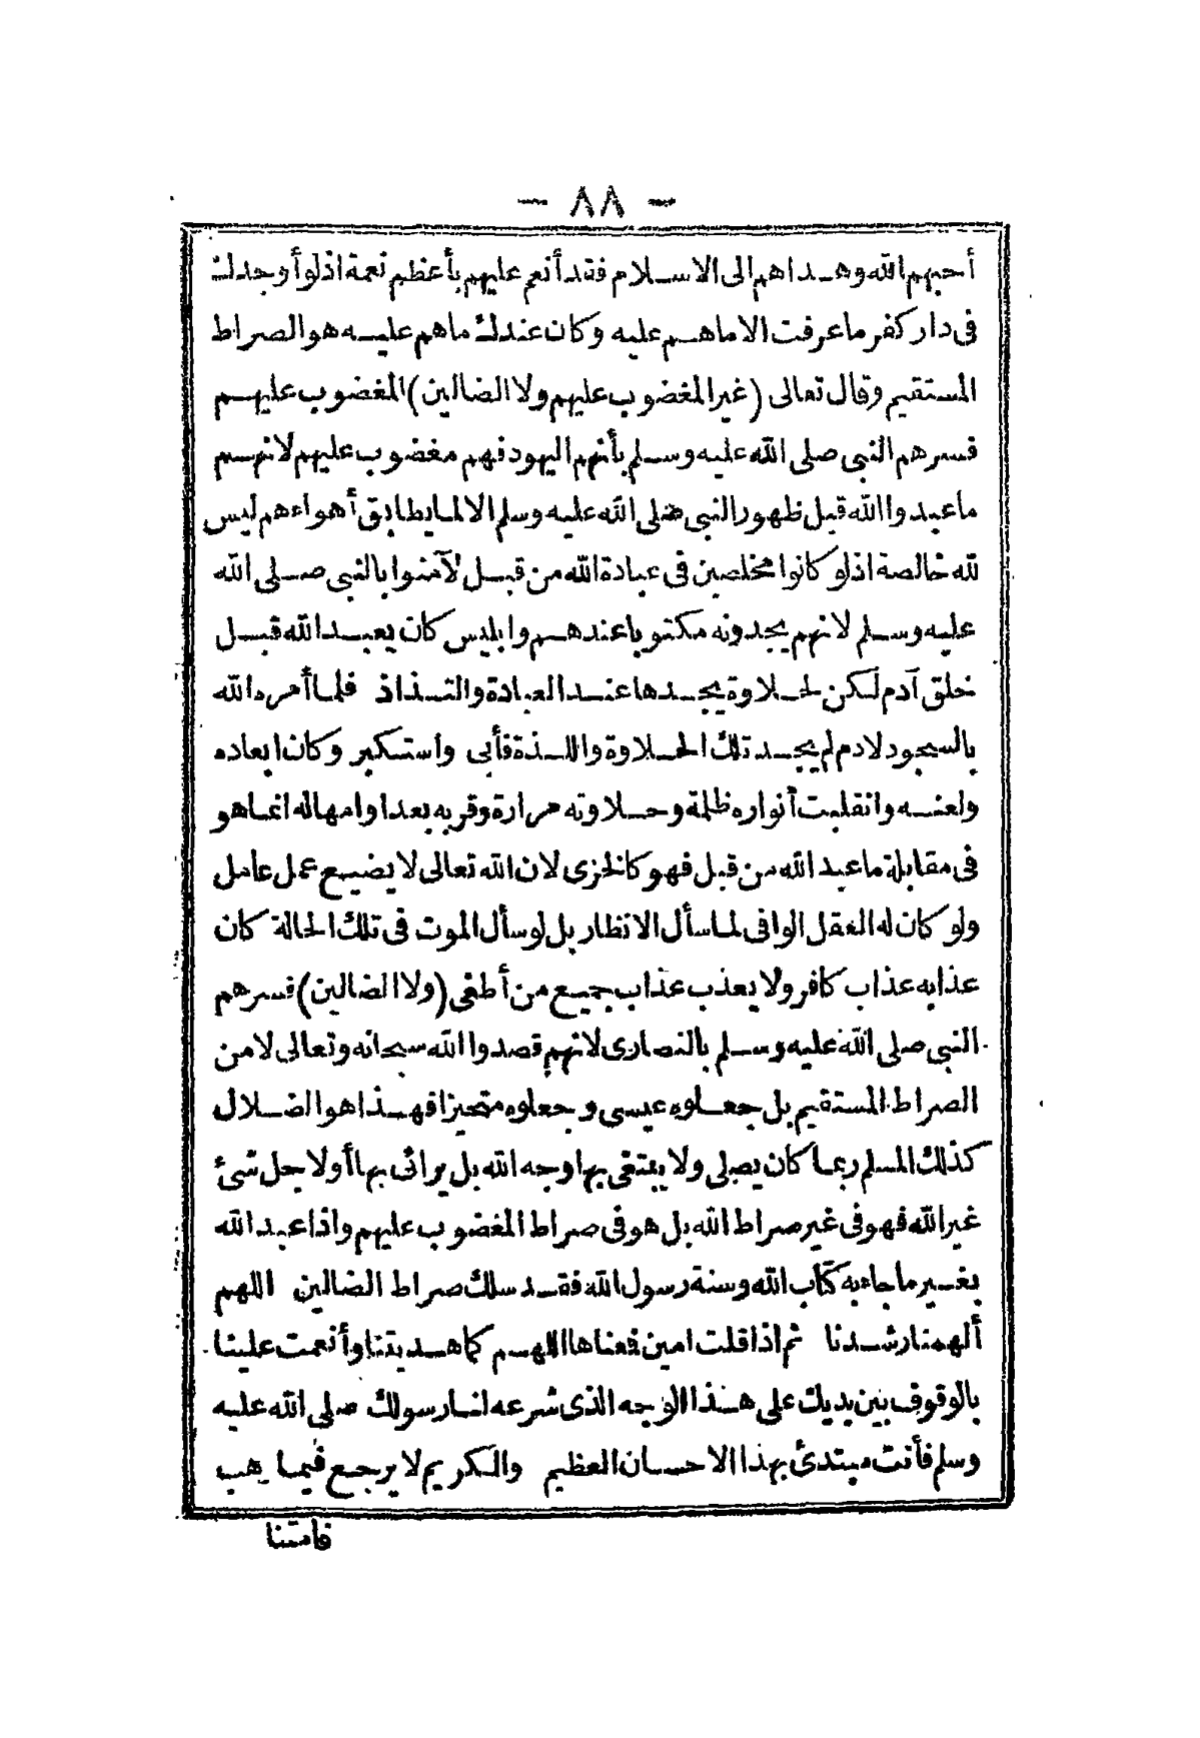 — ٨٨ —
أحبهم الله وهداهم الى الاسلام فقد أنعم عليهم بأعظم نعمة اذ لو أوجدك
فى دار كفر ما عرفت الا ما هم عليه وكان عندك ما هم عليه هو الصراط
المستقيم وقال تعالى (غير المغضوب عليهم ولا الضالين) المغضوب عليهم
فسرهم النبى صلى الله عليه وسلم بأنهم اليهود فهم مغضوب عليهم لانهم
ما عبدوا الله قبل ظهور النبى صلى الله عليه وسلم الا لما يطابق أهواءهم ليس
لله خالصة اذ لو كانوا مخلصين فى عبادة الله من قبل لآمنوا بالنبى صلى الله
عليه وسلم لانهم يجدونه مكتوبا عندهم وابليس كان يعبد الله قبل
خلق آدم لكن لحلاوة يجدها عند العبادة والتذاذ فلما أمره الله
بالسجود لادم لم يجد تلك الحلاوة واللذة فأبى واستكبر وكان ابعاده
ولعنه وانقلبت أنواره ظلمة وحلاوته مرارة وقربه بعدا وامهاله انما هو
فى مقابلة ما عبد الله من قبل فهو كالخزى لان الله تعالى لا يضيع عمل عامل
ولو كان له العقل الوافى لما سأل الانظار بل لو سأل الموت فى تلك الحالة كان
عذابه عذاب كافر ولا يعذب عذاب جميع من أطغى (ولا الضالين) فسرهم
النبى صلى الله عليه وسلم بالنصارى لانهم قصدوا الله سبحانه وتعالى لا من
الصراط المستقيم بل جعلوه عيسى وجعلوه متحيزا فهذا هو الضلال
كذلك المسلم ربما كان يصلى ولا يبتغى بها وجه الله بل يرائى بها أو لاجل شئ
غير الله فهو فى غير صراط الله بل هو فى صراط المغضوب عليهم واذا عبد الله
بغير ما جاء به كتاب الله وسنة رسول الله فقد سلك صراط الضالين اللهم
ألهمنا رشدنا ثم اذا قلت امين فمعناها اللهم كما هديتنا وأنعمت علينا
بالوقوف بين يديك على هذا الوجه الذى شرعه لنا رسولك صلى الله عليه
وسلم فأنت مبتدئ بهذا الاحسان العظيم والكريم لا يرجع فيما يهب
فامتنا